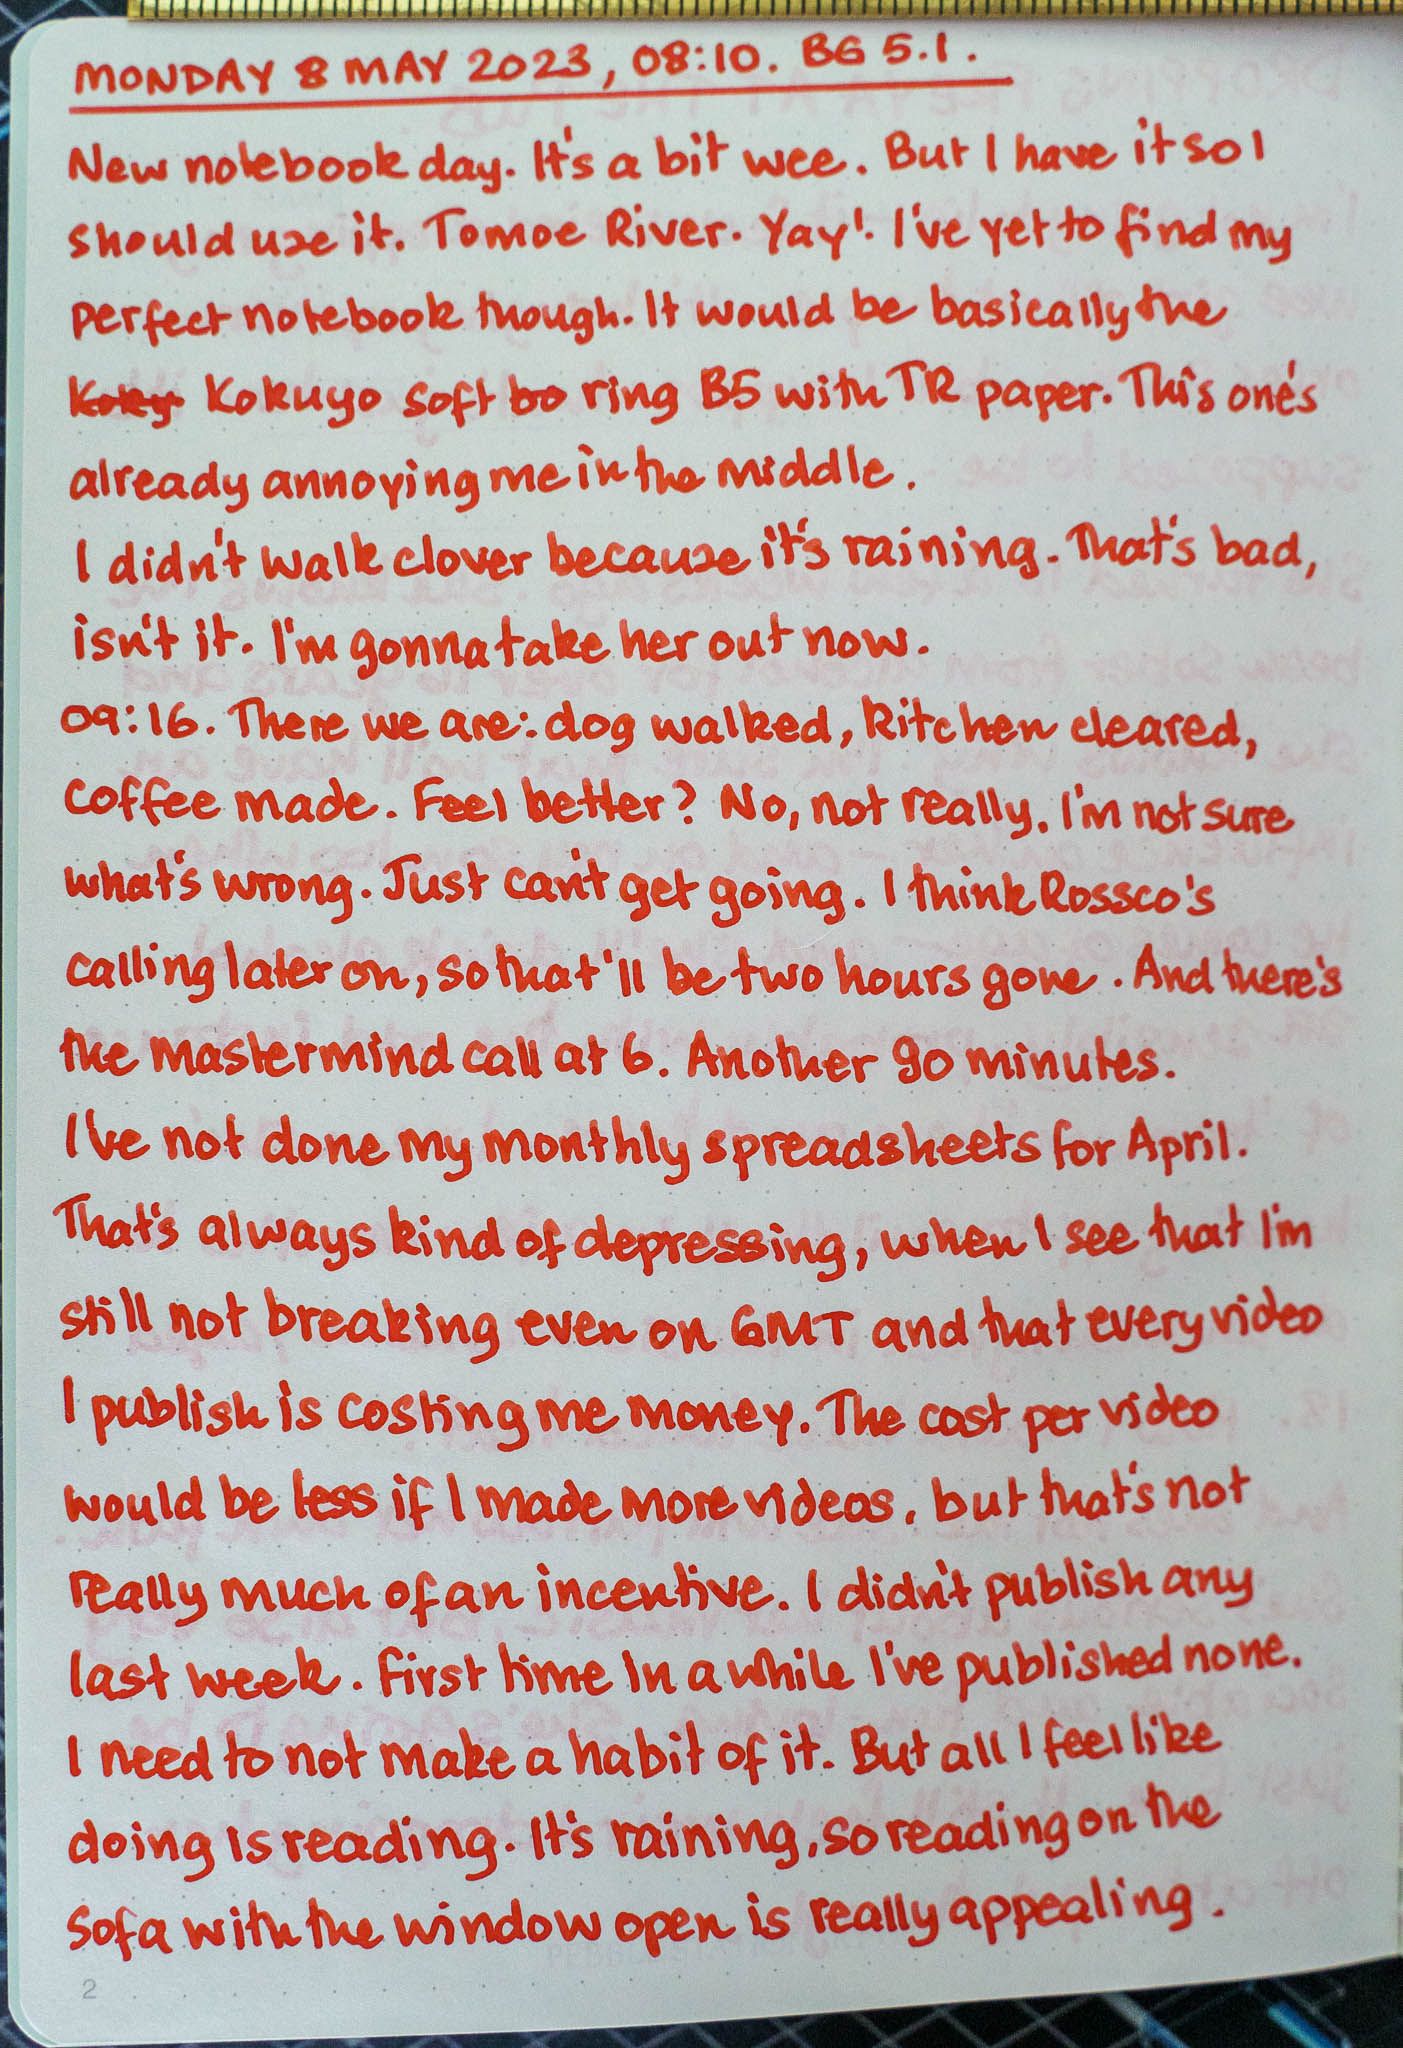 MONDAY 8 MAY 2023, 08:10. BG 5.1.
New notebook day. It's a bit wee. But I have it so I
should use it. Tomoe River. Yay! I've yet to find my
perfect notebook though. It would be basically the
Koky Kokuyo soft bo ring B5 with TR paper. This one's
already annoying me in the middle.
I didn't walk clover because it's raining. That's bad,
isn't it. I'm gonna take her out now.
09:16. There we are: dog walked, kitchen cleared,
coffee made. Feel better? No, not really. I'm not sure
what's wrong. Just can't get going. I think Rossco's
calling later on, so that'll be two hours gone. And there's
the Mastermind call at 6. Another 90 minutes.
I've not done my monthly spreadsheets for April.
That's always kind of depressing, when I see that I'm
still not breaking even on GMT and that every video
I publish is costing me money. The cost per video
would be less if I made more videos, but that's not
really much of an incentive. I didn't publish any
last week. First time in a while I've published none.
I need to not make a habit of it. But all I feel like
doing is reading. It's raining, so reading on the
sofa with the window open is really appealing.
2